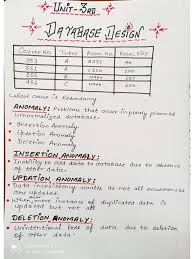 UNIT-3rd
DATABASE DESIGN
Course No. Tutor Room No. Room Size
353 A A532 45
351 A C320
355
456
Root cause is Redundancy
ANOMALY: Problems that occur in poorly planned
Unnormalized database.
Insertion Anomaly
Updation Anomaly
Deletion Anomaly
INSERTION ANOMALY:
Inability to add data to database due to absence
of other data.
UPDATION ANOMALY:
Data inconsistency results as not all occurrences
are updated.
When more instance of duplicated data is
updated but not all
DELETION ANOMALY:
Unintentional loss of data due to deletion
of other data.